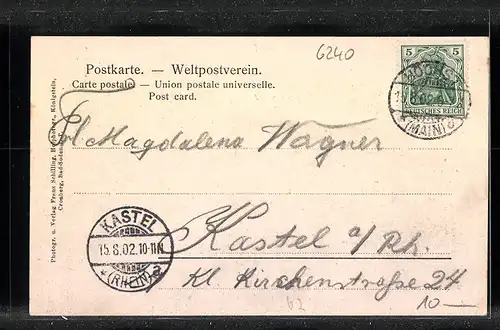 6240
Postkarte. — Weltpostverein.
Carte postale. — Union postale universelle.
Post card.
5 5
DEUTSCHES REICH
(MAIN)
Frl Magdalena Wagner
KASTEL
15.8.02.10-11N
* (RHEIN) a
Kastel a/Rh.
Kl. Kirchenstraße 24
62
10—
Photogr. u. Verlag Franz Schilling, Königstein,
Cronberg, Bad-Soden